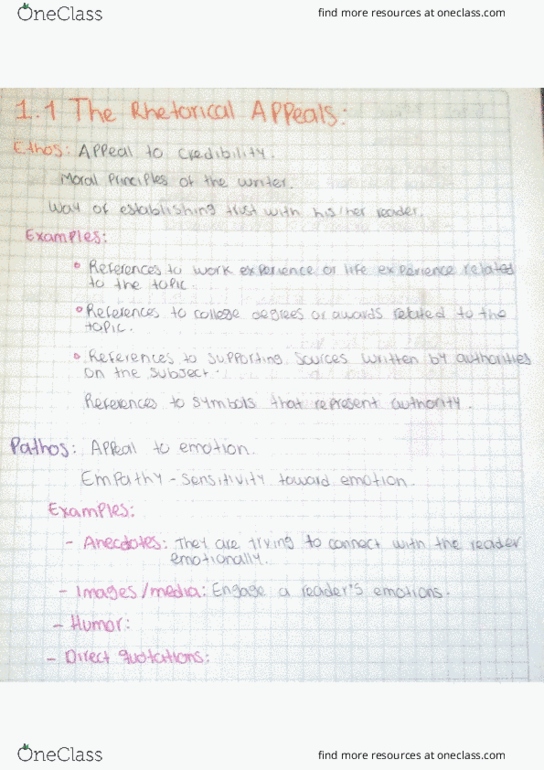 OneClass
find more resources at oneclass.com
1.1 The Rhetorical Appeals:
Ethos: Appeal to credibility.
Moral Principles of the writer.
Way of establishing trust with his/her reader.
Examples:
• References to work experience or life experience related
to the topic
• References to college degrees or awards related to the
topic.
• References to supporting sources written by authorities
on the subject.
References to symbols that represent authority.
Pathos: Appeal to emotion.
Empathy - Sensitivity toward emotion.
Examples:
- Anecdotes: They are trying to connect with the reader
emotionally.
- Images/media: Engage a reader's emotions.
- Humor:
- Direct quotations:
OneClass
find more resources at oneclass.com